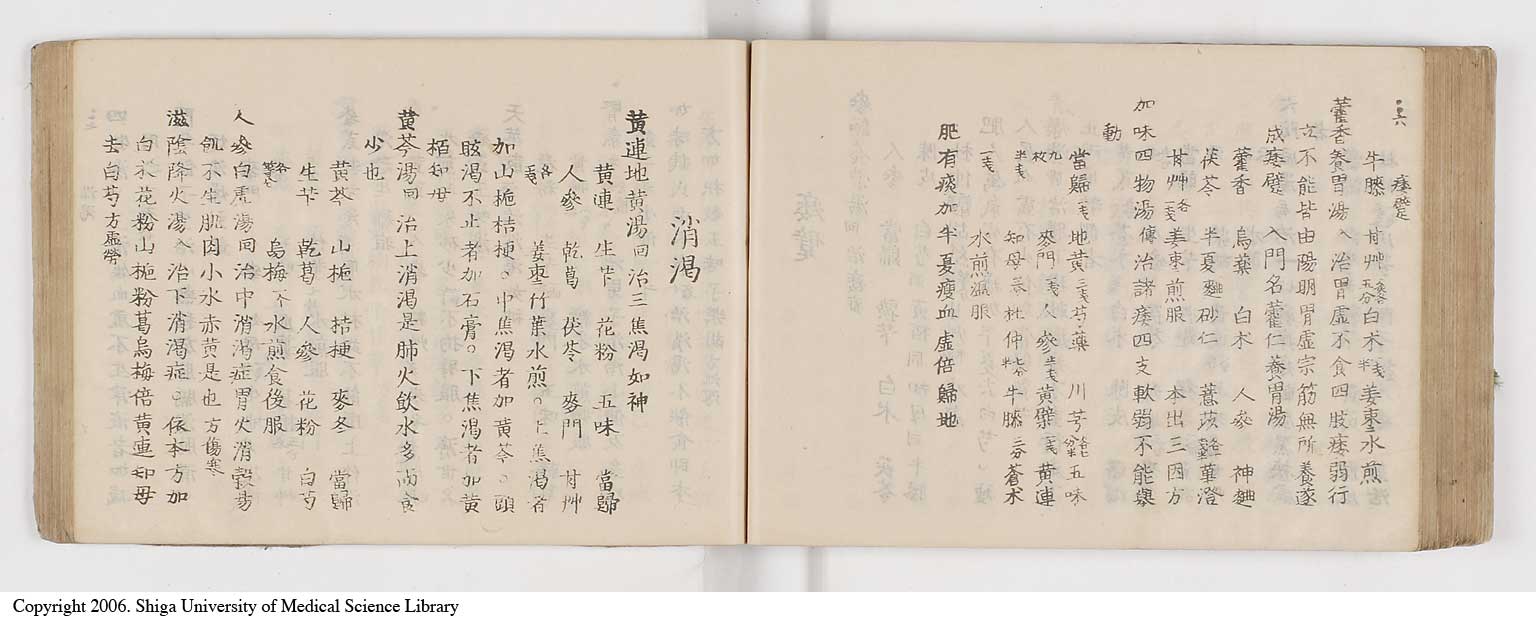 三六
痿躄
牛膝 甘艸 各五分 白朮 一戔半 姜棗水煎
藿香養胃湯 入 治胃虛不食四肢痿弱行
立不能皆由陽明胃虛宗筋無所養遂
成痿躄 入門名藿仁養胃湯
藿香 烏藥 白朮 人參 神麯
茯苓 半夏麯 砂仁 薏苡 各半 蓽澄
甘艸 各一戔 姜棗煎服 本出三因方
加味四物湯 傳 治諸痿四支軟弱不能舉
動
當歸 一戔 地黃 三戔 芍藥 川芎 五味
九枚 麥門 一戔 人參 半戔 黃檗 一戔 黃連
半戔 知母 杜仲 牛膝 三分 蒼朮
一戔 水煎溫服
肥有痰加半夏瘦血虛倍歸地
消渴
黃連地黃湯 回 治三焦渴如神
黃連 生芐 花粉 五味 當歸
人參 乾葛 茯苓 麥門 甘艸
各一戔 姜棗竹葉水煎○上焦渴者
加山梔桔梗○中焦渴者加黃芩○頭
眩渴不止者加石膏○下焦渴者加黃
栢知母
黃芩湯 回 治上消渴是肺火飲水多而食
少也
黃芩 山梔 桔梗 麥冬 當歸
生芐 乾葛 人參 花粉 白芍
各等分 烏梅 一个 水煎食後服
人參白虎湯 回 治中消渴症胃火消穀易
飢不生肌肉小水赤黃是也 方傷寒
滋陰降火湯 入 治下消渴症○依本方加
去白芍 方虛勞
白朮花粉山梔粉葛烏梅倍黃連知母